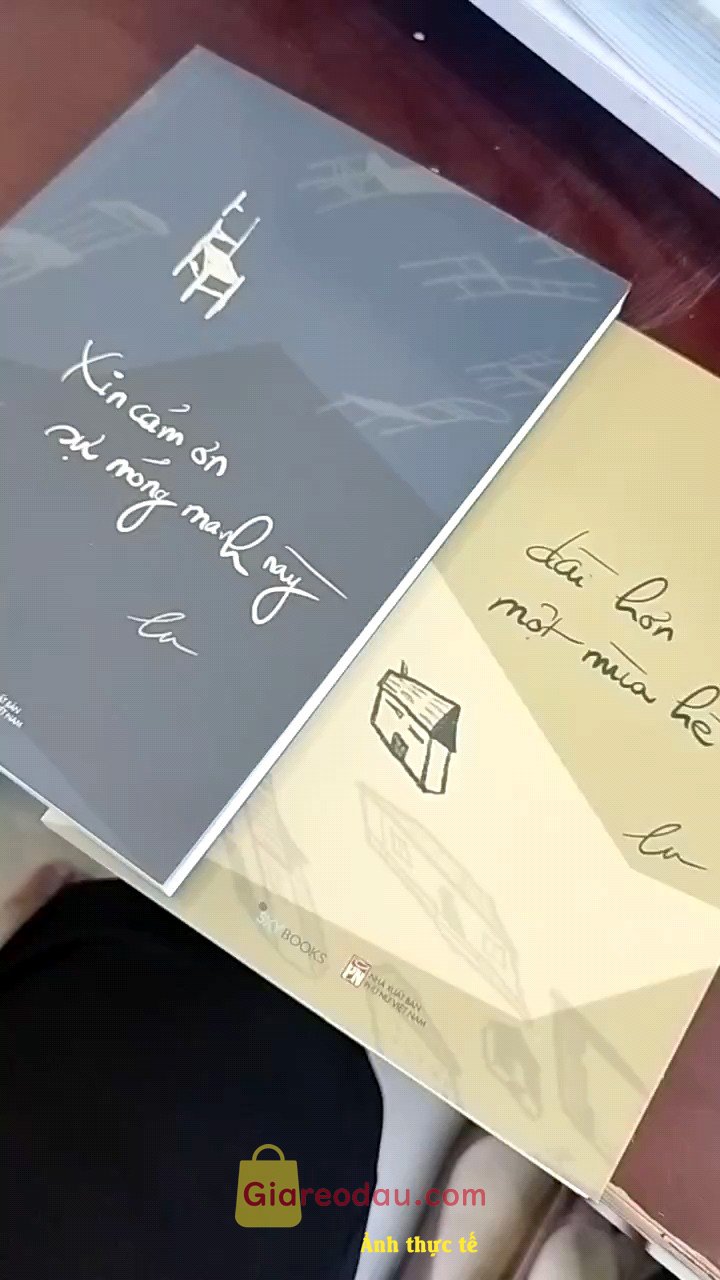 Xin cảm ơn
sự mỏng manh này
lu
dài hơn
một mùa hè
lu
SKYBOOKS
NHÀ XUẤT BẢN
PHỤ NỮ VIỆT NAM
Giareodau.com
Ảnh thực tế